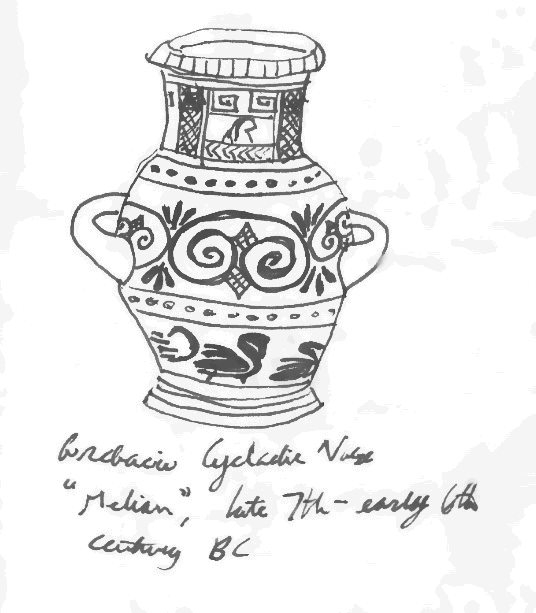 Cycladic Vase
"Melian", late 7th - early 6th
century BC